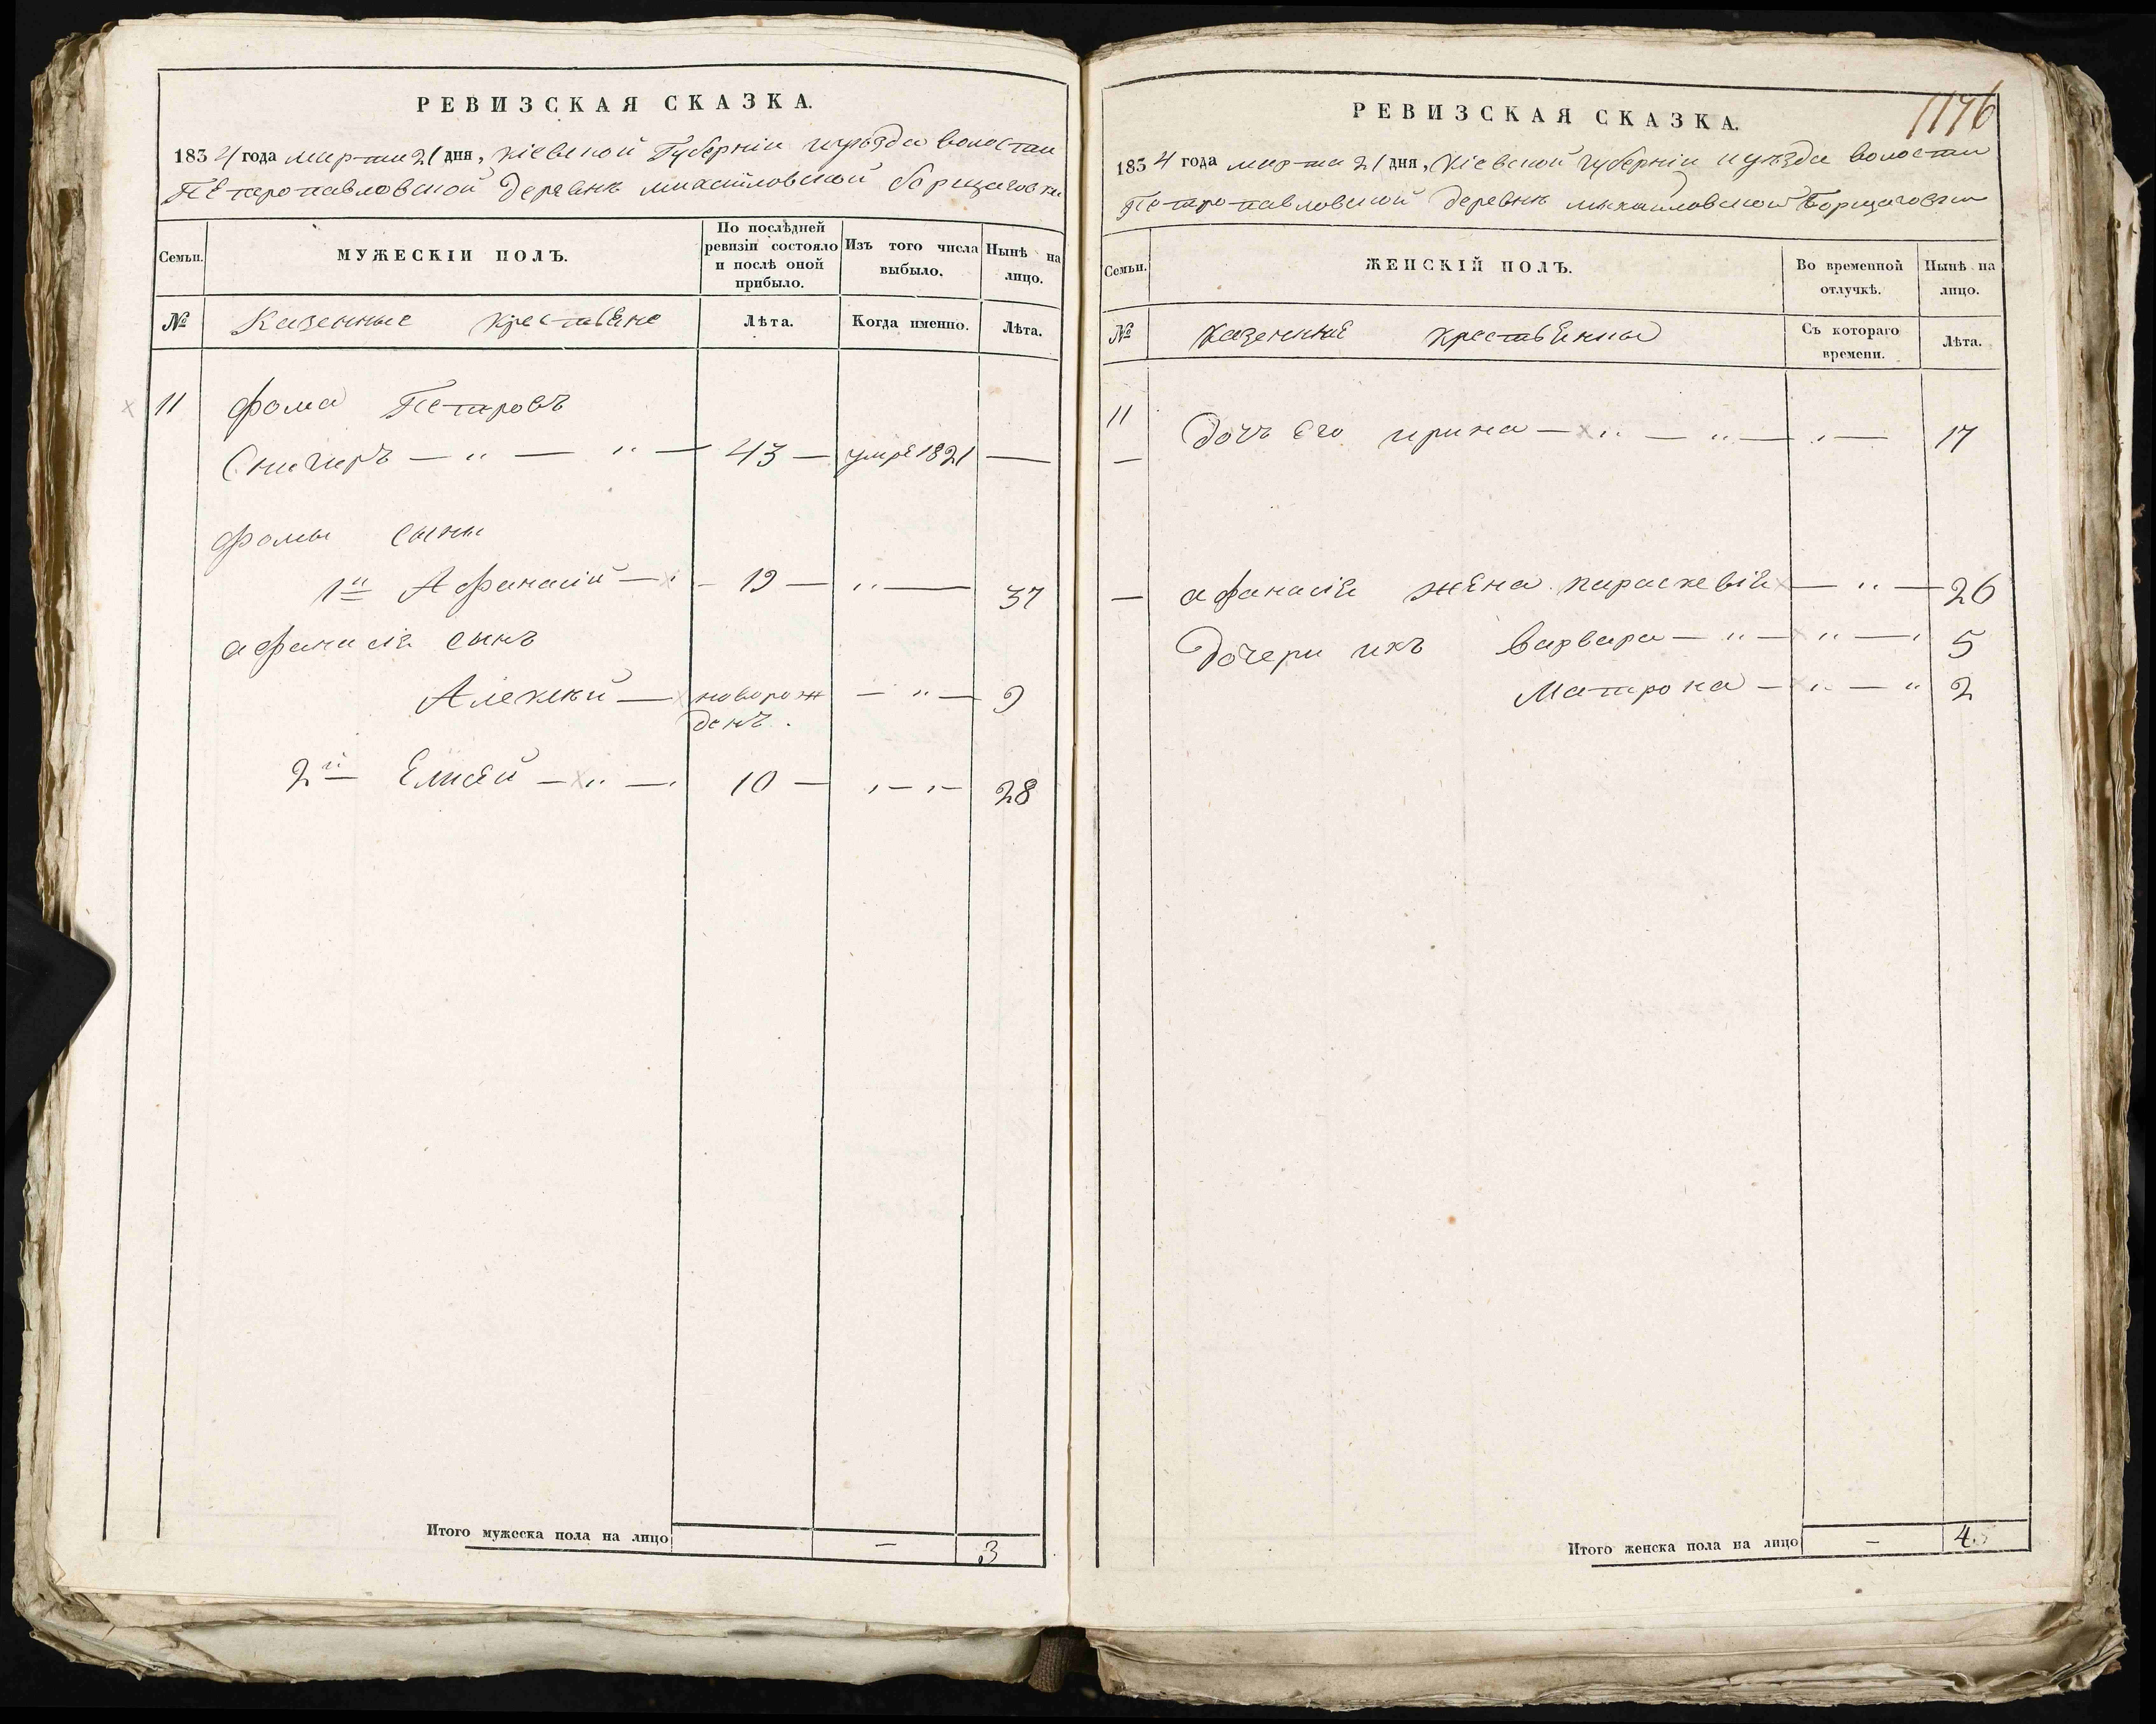 РЕВИЗСКАЯ СКАЗКА.
1834 года марта 21 дня, Кіевской Губерніи и уѣзда волости
Петропавловской деревнѣ михайловской борщаговки
Семьи.
МУЖЕСКІИ ПОЛЪ.
По послѣдней ревизіи состояло и послѣ оной прибыло.
Изъ того числа выбыло.
Нынѣ на лицо.
№
Казенные крестьяне
Лѣта.
Когда именно.
Лѣта.
11 фома Петровъ
Снигиръ — " — " — 43 — умре 1821 —
фомы сыны
1й Афанасій — " — 19 — " — 37
афанасія сынъ
Алексѣй — новорож — " — 9
денъ.
2й Елисей — " — " 10 — " — " — 28
Итого мужеска пола на лицо — 3
1176
РЕВИЗСКАЯ СКАЗКА.
1834 года марта 21 дня, Кіевской губерніи и уѣзда волости
Петропавловской деревнѣ михайловской Борщаговки
Семьи.
ЖЕНСКІЙ ПОЛЪ.
Во временной отлучкѣ.
Нынѣ на лицо.
№
Казенные крестьянки
Съ котораго времени.
Лѣта.
11 дочь его ирина — " — " — " — 17
— афанасія жена параскевія — " — 26
Дочери ихъ варвара — " — " — " 5
Матрона — " — " 2
Итого женска пола на лицо — 4